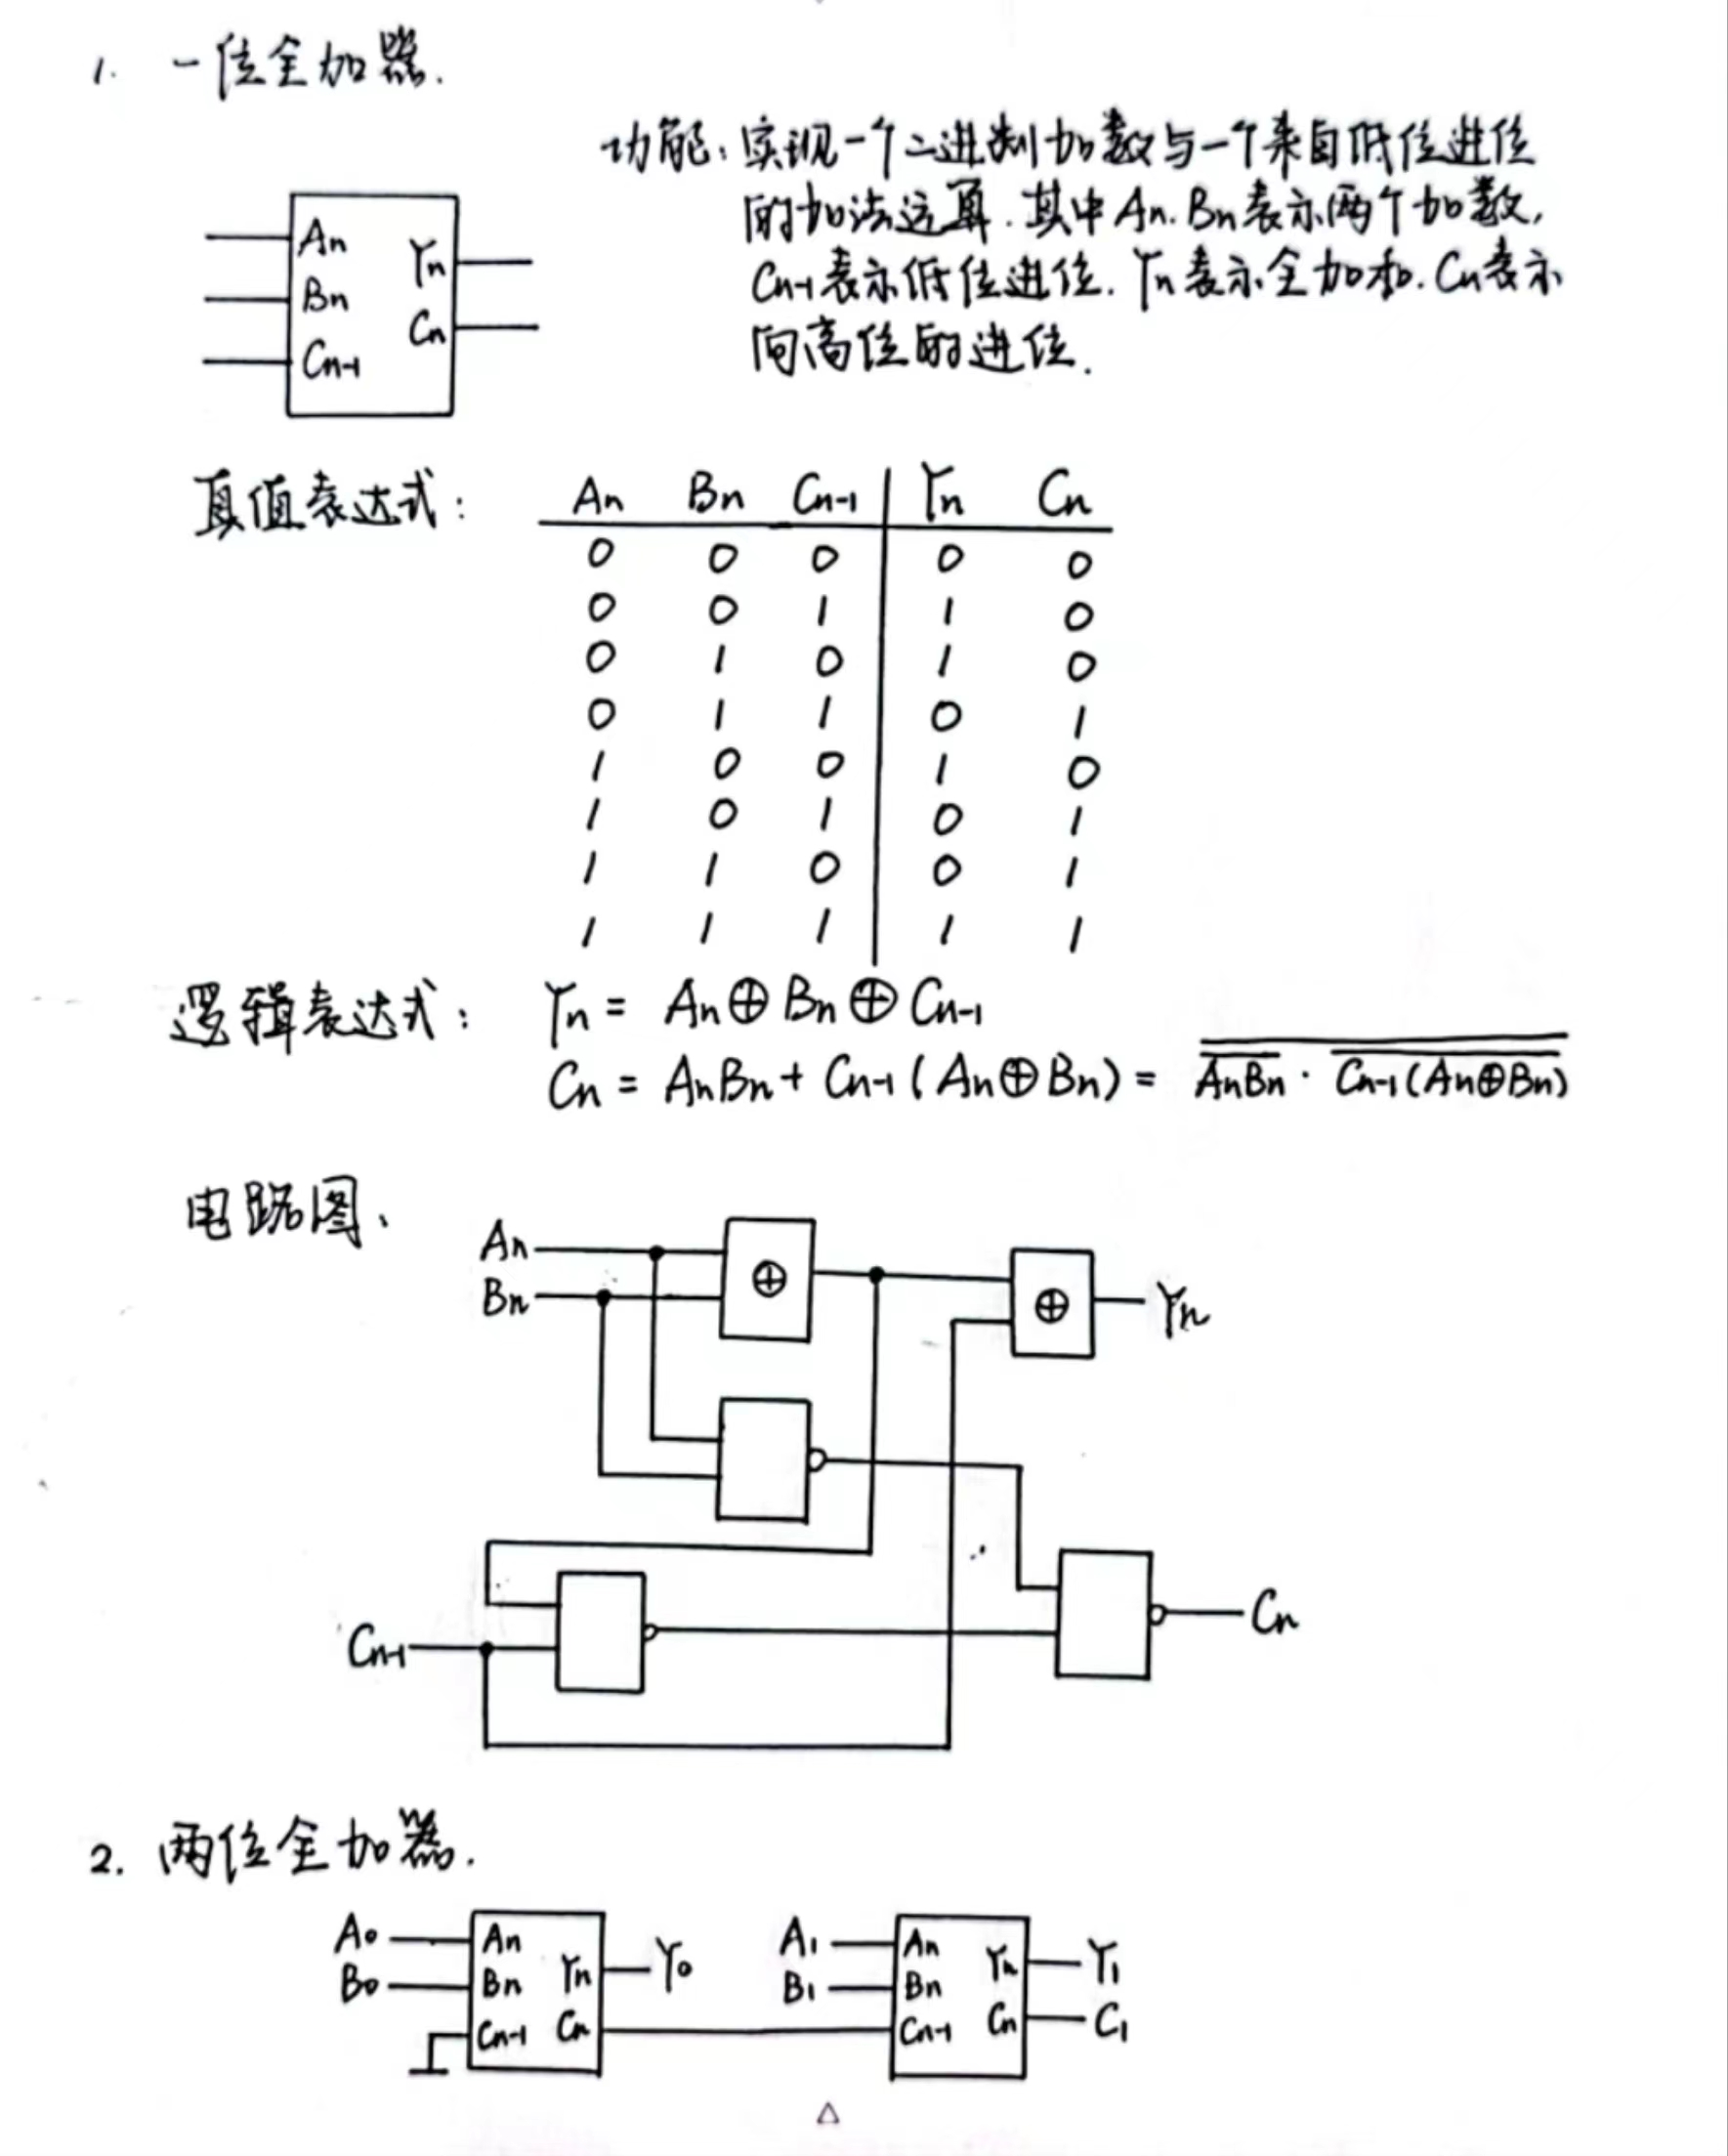 1. 一位全加器.
功能：实现一个二进制加数与一个来自低位进位
的加法运算. 其中An. Bn表示两个加数,
Cn-1表示低位进位. Yn表示全加和. Cn表示
向高位的进位.
An
Bn
Cn-1
Yn
Cn
真值表达式：
An Bn Cn-1 Yn Cn
0 0 0 0 0
0 0 1 1 0
0 1 0 1 0
0 1 1 0 1
1 0 0 1 0
1 0 1 0 1
1 1 0 0 1
1 1 1 1 1
逻辑表达式： Yn = An⊕Bn⊕Cn-1
Cn = AnBn + Cn-1(An⊕Bn) = \overline{\overline{AnBn} · \overline{Cn-1(An⊕Bn)}}
电路图、
An
Bn
⊕
⊕
Yn
Cn-1
Cn
2. 两位全加器.
A0
B0
An
Bn
Cn-1
Yn
Cn
Y0
A1
B1
An
Bn
Cn-1
Yn
Cn
Y1
C1